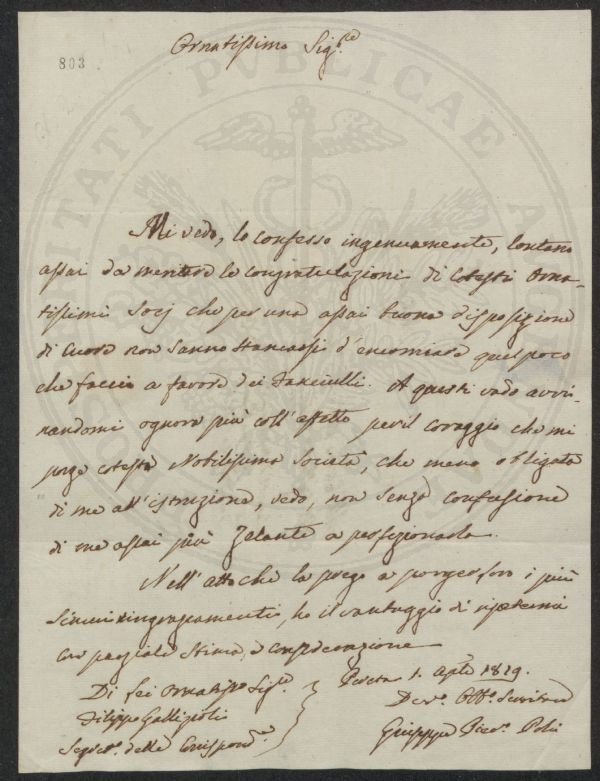 803
Ornatissimo Sigre
Mi vedo, lo confesso ingenuamente, lontano
assai da meritare le congratulazioni di cotesti Orna-
tissimi Socj che per una assai buona disposizione
di cuore non sanno stancarsi d'encomiare quel poco
che faccio a favore dei Fanciulli. A questi vado avvi-
nandomi ognora più coll'affetto per il coraggio che mi
porge cotesta Nobilissima Società, che meno obligata
di me all'istruzione, vedo, non senza confusione
di me assai più zelante a perfezionarla.
Nell'atto che la prego a porger loro i più
sinceri ringraziamenti, ho il vantaggio di ripetermi
con parziale stima, e considerazione
Di Lei Ornatisso Sigre
Filippo Gallizioli
Segreto delle Corrispondze
1. Aple 1819.
Devo Obbo Servitore
Giuseppe Poli